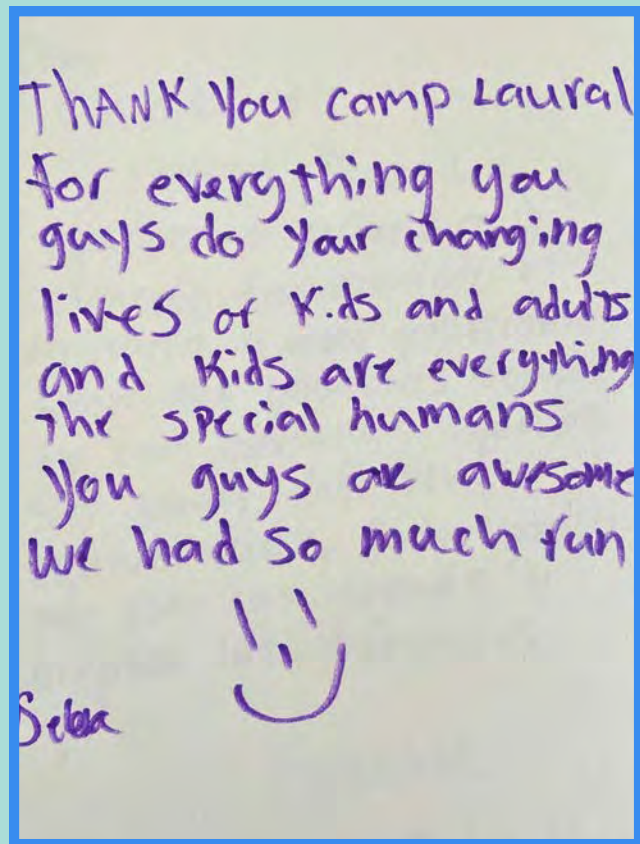 THANK You camp Laural
for everything you
guys do your changing
lives of Kids and adults
and Kids are everything
The special humans
You guys are awesome
we had so much fun